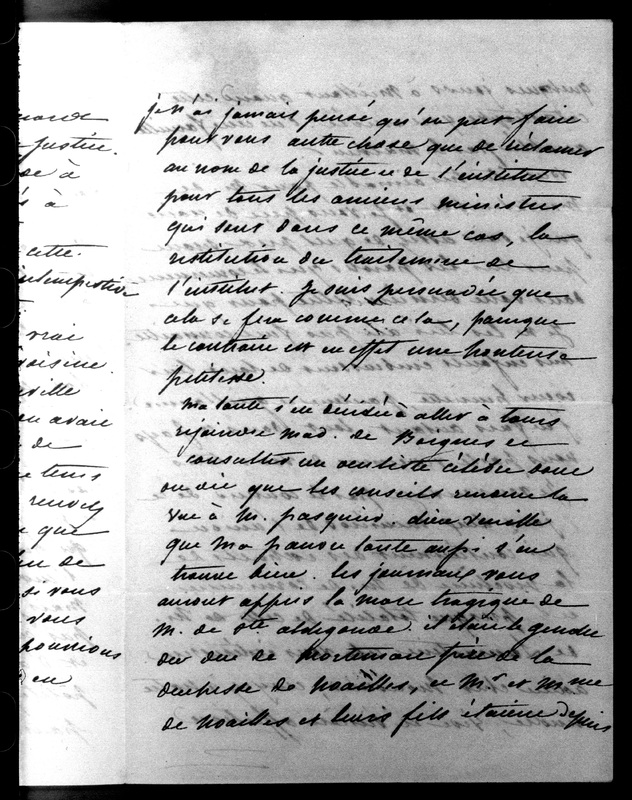 uarde
justice.
de à
s à
cette
intempestive
vrai
voisine.
ville
on avait
de
tems
rendez
que
de
si vous
vous
pourrions
en
je n'ai jamais pensé qu'on put faire
pour vous autre chose que de réclamer
au nom de la justice et de l'institut
pour tous les anciens ministres
qui sont dans ce même cas, la
restitution du traitement de
l'institut. Je suis persuadée que
cela se fera comme cela, puisque
le contraire est en effet une honteuse
petitesse.
ma tante s'en décidée à aller à tours
rejoindre mad. de Borgues et
consulter un dentiste célèbre dont
on dit que les conseils rendent la
vue à M. pasquier. dieu veuille
que ma pauvre tante aussi s'en
trouve bien. les journaux vous
auront appris la mort tragique de
M. de Ste aldegonde. il était le gendre
du duc de Mortemart frère de la
duchesse de Noailles, et Mr et Mme
de Noailles et leurs fils étaient depuis